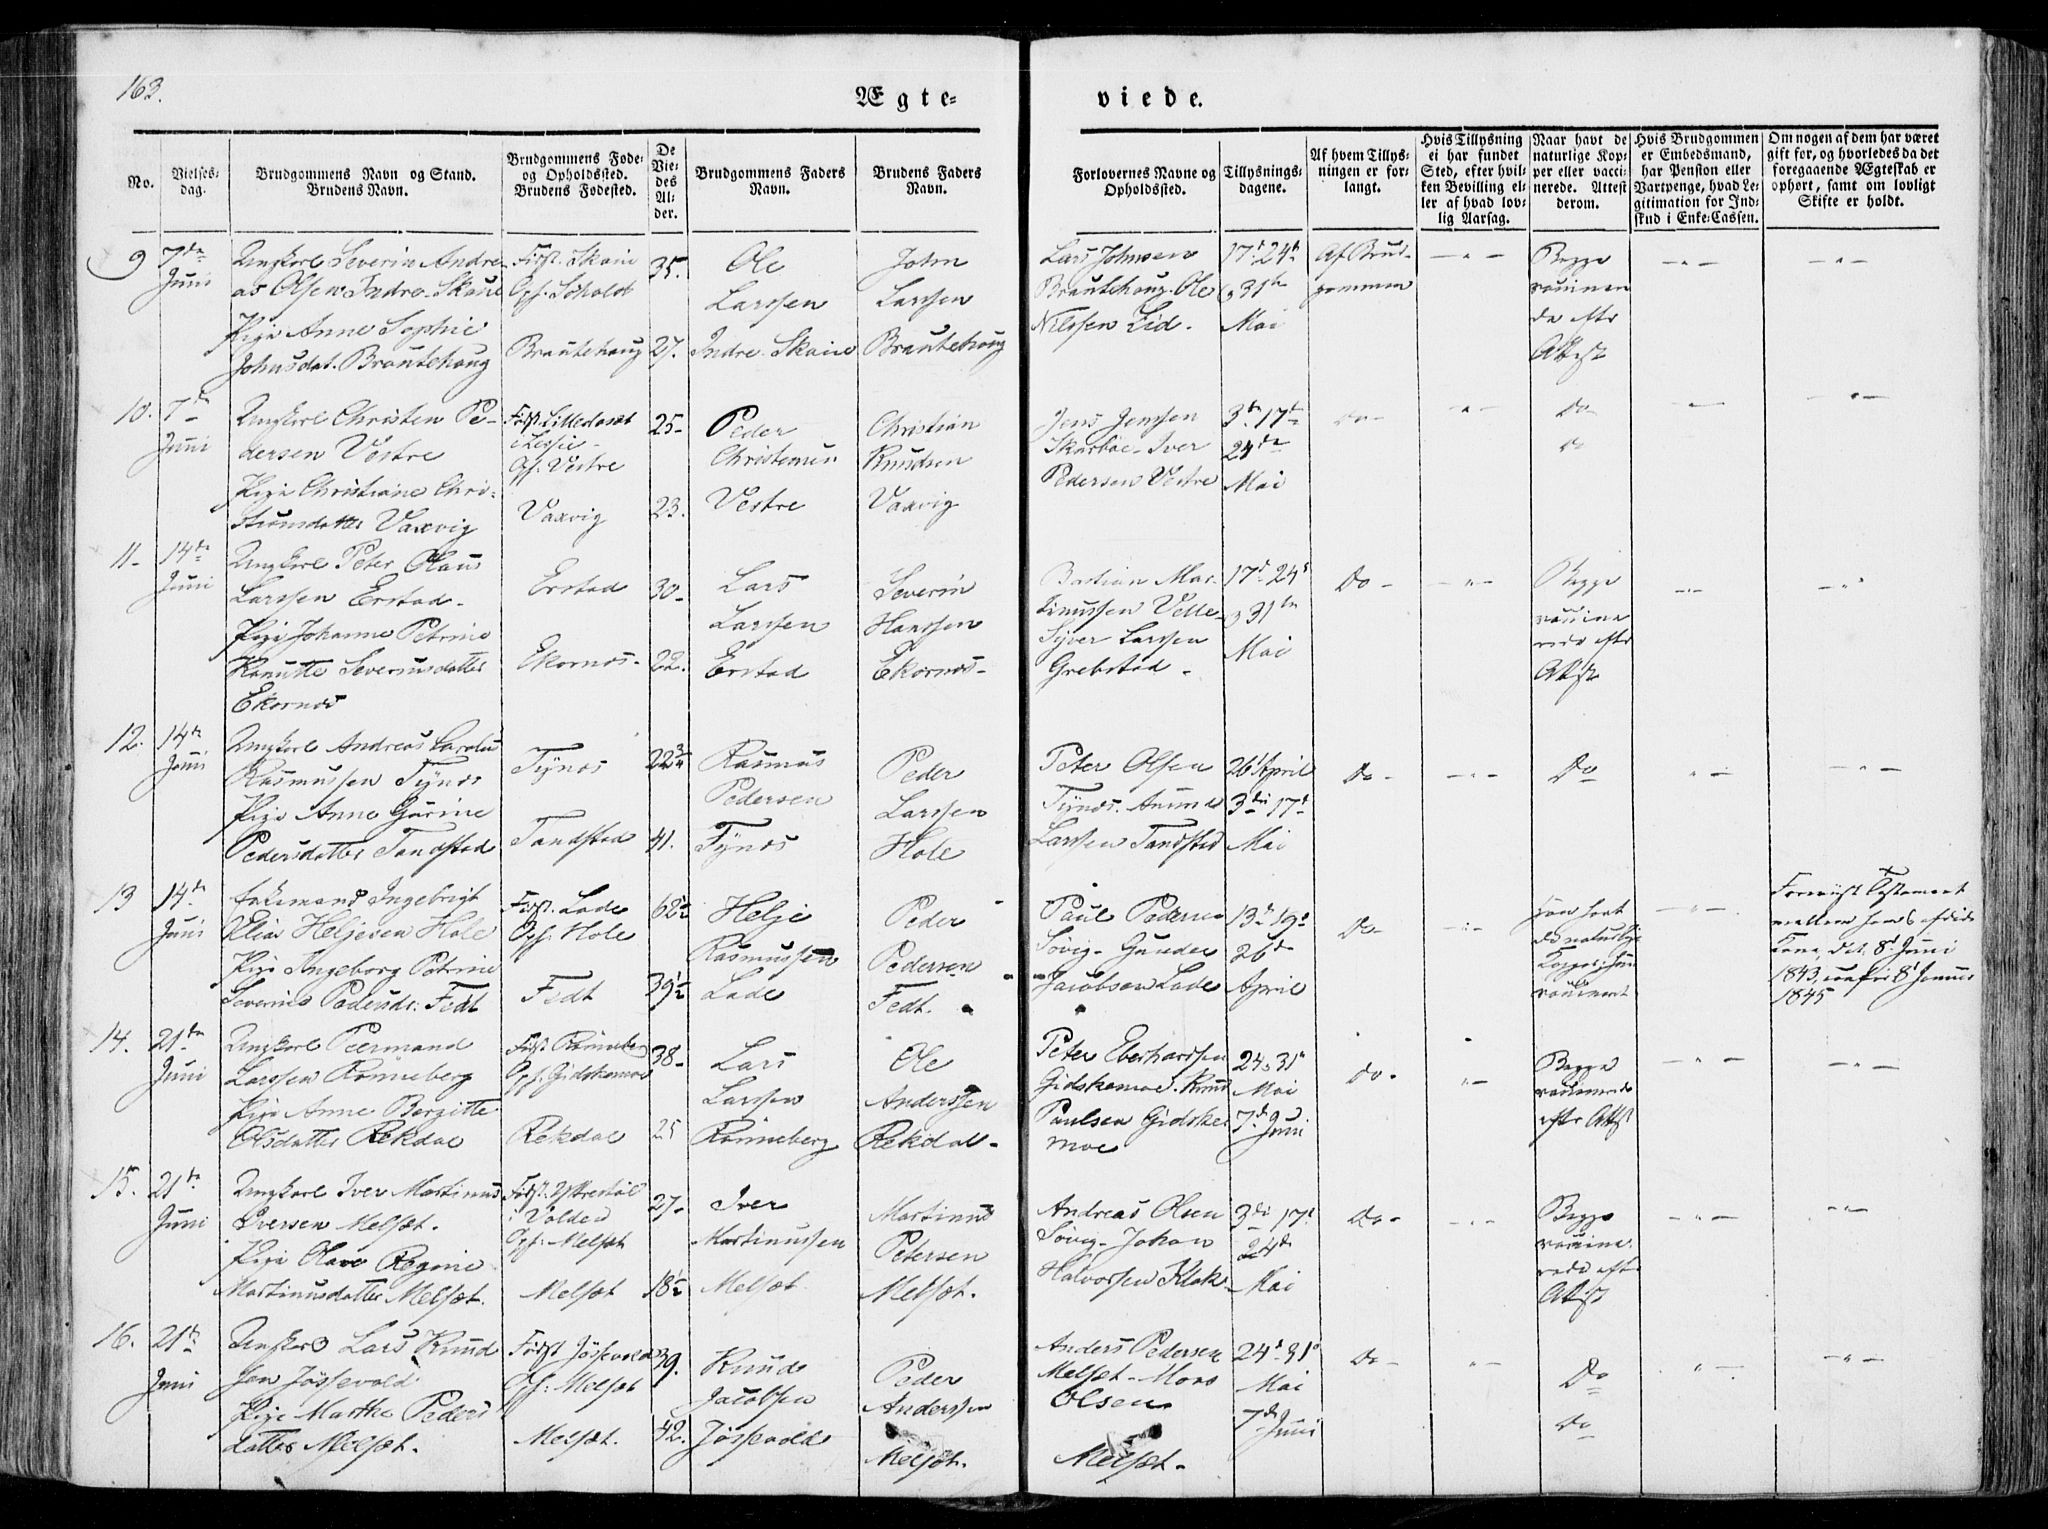 163.
Ægte-
viede.
No.
Vielses-
dag.
Brudgommens Navn og Stand.
Brudens Navn.
Brudgommens Føde-
og Opholdssted.
Brudens Fødested.
De
Vie-
des
Al-
der.
Brudgommens Faders
Navn.
Brudens Faders
Navn.
Forlovernes Navne og
Opholdssted.
Tillysnings-
dagene.
Af hvem Tillys-
ningen er for-
langt.
Hvis Tillysning
ei har fundet
Sted, efter hvil-
ken Bevilling el-
ler af hvad lov-
lig Aarsag.
Naar havt de
naturlige Kop-
per eller vacci-
nerede. Attest
derom.
Hvis Brudgommen
er Embedsmand,
har Pension eller
Vartpenge, hvad Le-
gitimation for Ind-
skud i Enke-Cassen.
Om nogen af dem har været
gift for, og hvorledes da det
foregaaende Ægteskab er
ophørt, samt om lovligt
Skifte er holdt.
9
7de
Juni
Ungkarl Severin Andre-
as Olsen Indre-Skave
Pige Anne Sophie
Johnsdat. Brautehoug
Opf. Søholdt
Brautehoug
35.
27.
Ole
Larssen
John
Larssen
Brautehoug
Lars Johnsen
Brautehoug. Ole
Nilssen Lid.
17. 24
31te
Mai
Af Brud-
gommen
Begge
efter
Attest
10.
7de
Juni
Ungkarl Christen Pe-
dersen Vestre
Pige Christiane Chri-
Vaxvig
Opf. Vestre
Vaxvig
25
23.
Peder
Christensen
Vestre
Christian
Knudsen
Vaxvig
Jens Jenssen
Iver
Pedersen Vestre
3de 17de
24de
Mai
Do
Do
11-
14de
Juni
Ungkarl Peter Olaus
Larssen Erstad-
Pige Johanne Petrine
Severinsdatter
Ekornes
Erstad
Ekornes-
30-
22.
Lars
Larssen
Erstad
Severin
Hanssen
Ekornes-
Bastian Mar-
tinussen Velle-
Syver Larssen
Grebstad-
17d 24d
31te
Mai
Do-
Begge
efter
Attest
12.
14de
Juni
Ungkarl Andreas Carolus
Rasmussen Tynes
Pige Anne Gurine
Pedersdatter Tandstad
Tynes
Tandstad
41.
Rasmus
Pedersen
Tynes
Peder
Larssen
Hole
Peter Olsen
Tynes.
Larssen Tandstad
26 April
3die 17d
Mai
Do-
Do
13
14de
Juni
Enkemand Ingebrigt
Elias Heljesen Hole
Pige Ingeborg Petrine
Severine Pedersdr. Fedt
Født. Lade
Opf. Hole
Fedt
62
39½
Helje
Rasmussen
Lade
Peder
Pedersen
Fedt.
Paul Pedersen
Søvig- Gunder
Jacobsen Lade
13de 19de
26de
April
Do-
Testament
mellem
Kone, det. 8d Juni
1843,
1845
14.
21de
Juni
Ungkarl Peermand
Larssen Rønneberg
Pige Anne Bergitte
Olsdatter Rekdal
Opf. Gidskemoe
Rekdal
38-
25
Lars
Larssen
Rønneberg
Ole
Anderssen
Rekdal-
Peter Eberhardssen
Gidskemoe. Knud
Paulsen Gidske
moe
24. 31
Mai
7de Juni
Do-
Begge
efter Attst
15.
21de
Juni
Ungkarl Iver Martinus
Iversen Melsæt.
Pige Olave Regine
Martinusdatter Melsæt.
i Volden
Opf: Melsæt
Melsæt
27-
18½
Iver
Martinussen
Melsæt
Martinus
Petersen
Melsæt.
Andreas Olsen
Søvig- Johan
Halvorssen Klok-
3die 17d
24de
Mai
Do-
Begge
efter
Attst
16.
21de
Juni
Ungkarl Lars Knud
sen Jøssevold
Pige Marthe Peders
datter Melsæt.
Født Jøssevold
Opf: Melsæt
Melsæt.
39.
42.
Knud
Jacobsen
Jøssevold
Peder
Anderssen
Melsæt.
Anders Pedersen
Melsæt- Mons
Olsen
Melsæt-
24d. 31d
Mai
7de Juni
Do-
Do
Do